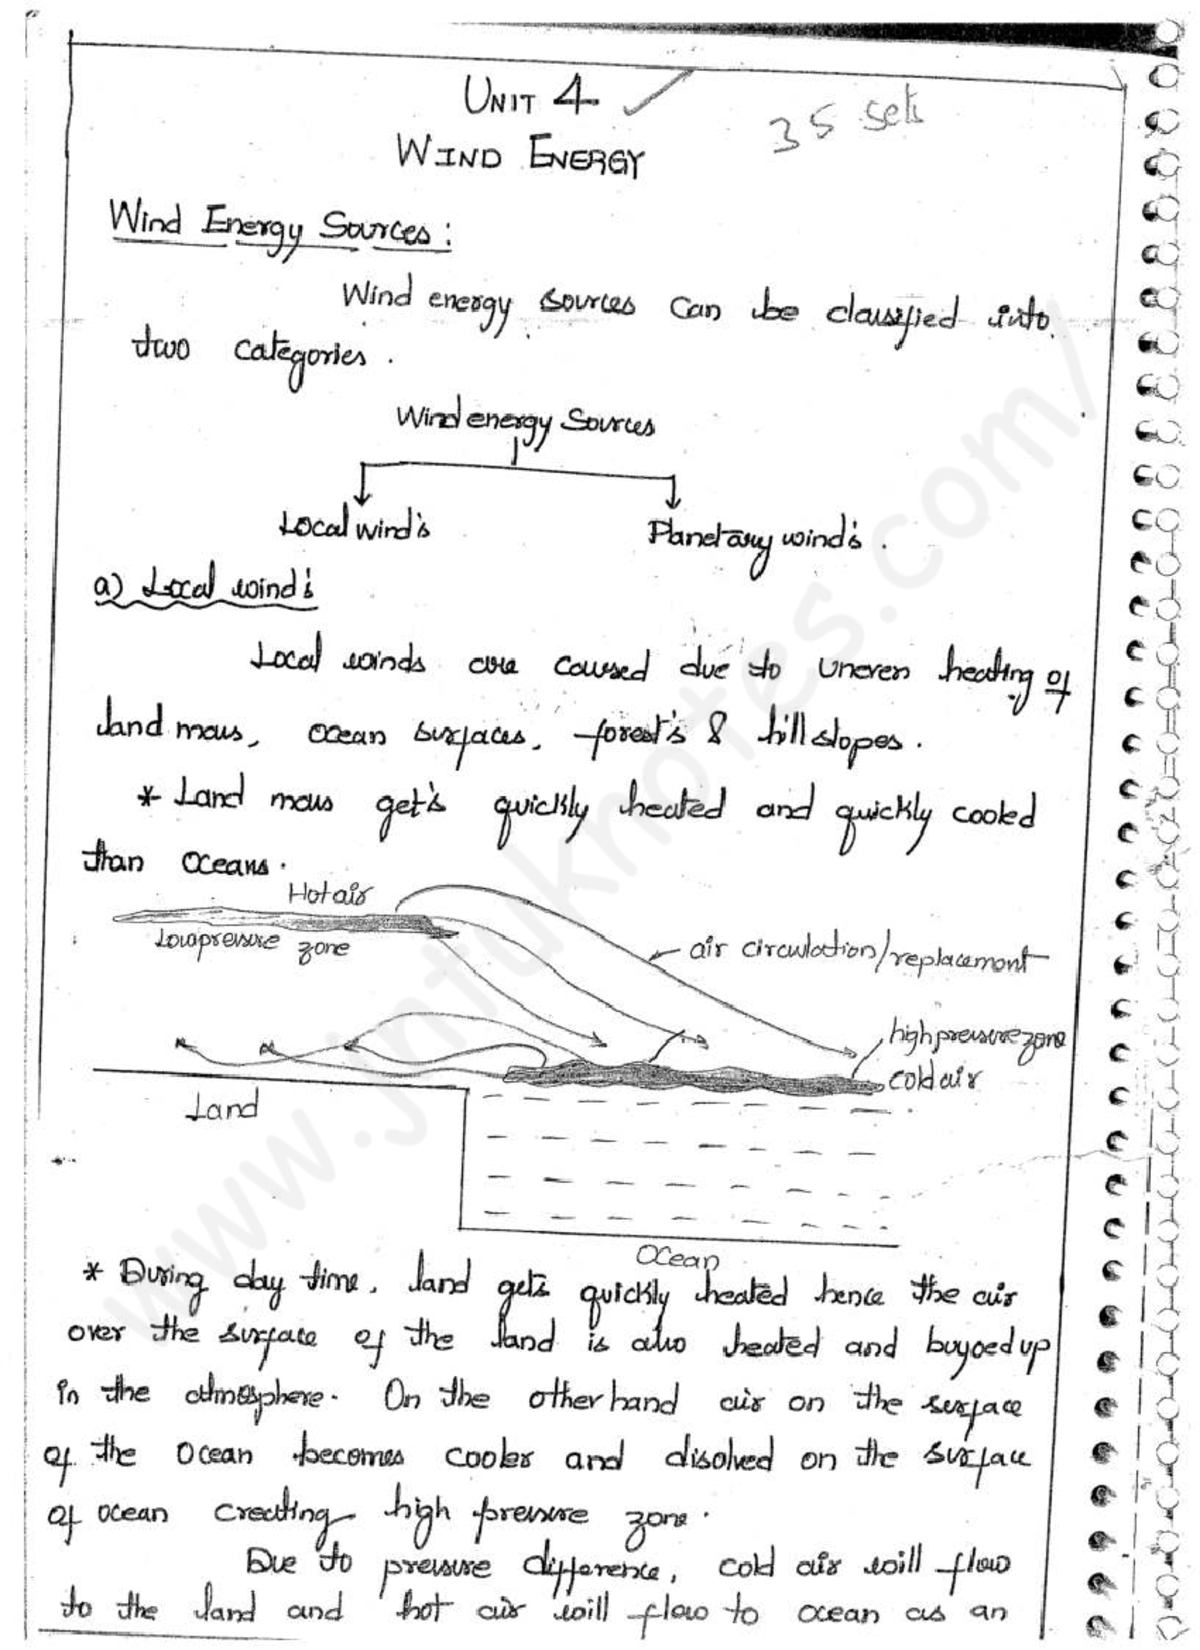 UNIT 4
35 sets
WIND ENERGY
Wind Energy Sources:
Wind energy sources can be classified into
two categories.
Wind energy Sources
Local wind's
Planetary wind's.
a) Local wind's
Local winds are caused due to uneven heating of
land mass, ocean surfaces, forest's & hill slopes.
* Land mass get's quickly heated and quickly cooled
than oceans.
Hot air
Low pressure zone
air circulation/replacement
high pressure zone
cold air
Land
Ocean
* During day time, land gets quickly heated hence the air
over the surface of the land is also heated and buyoed up
in the atmosphere. On the other hand air on the surface
of the ocean becomes cooler and disolved on the surface
of ocean creating high pressure zone.
Due to pressure difference, cold air will flow
to the land and hot air will flow to ocean as an
www.jntuknotes.com/